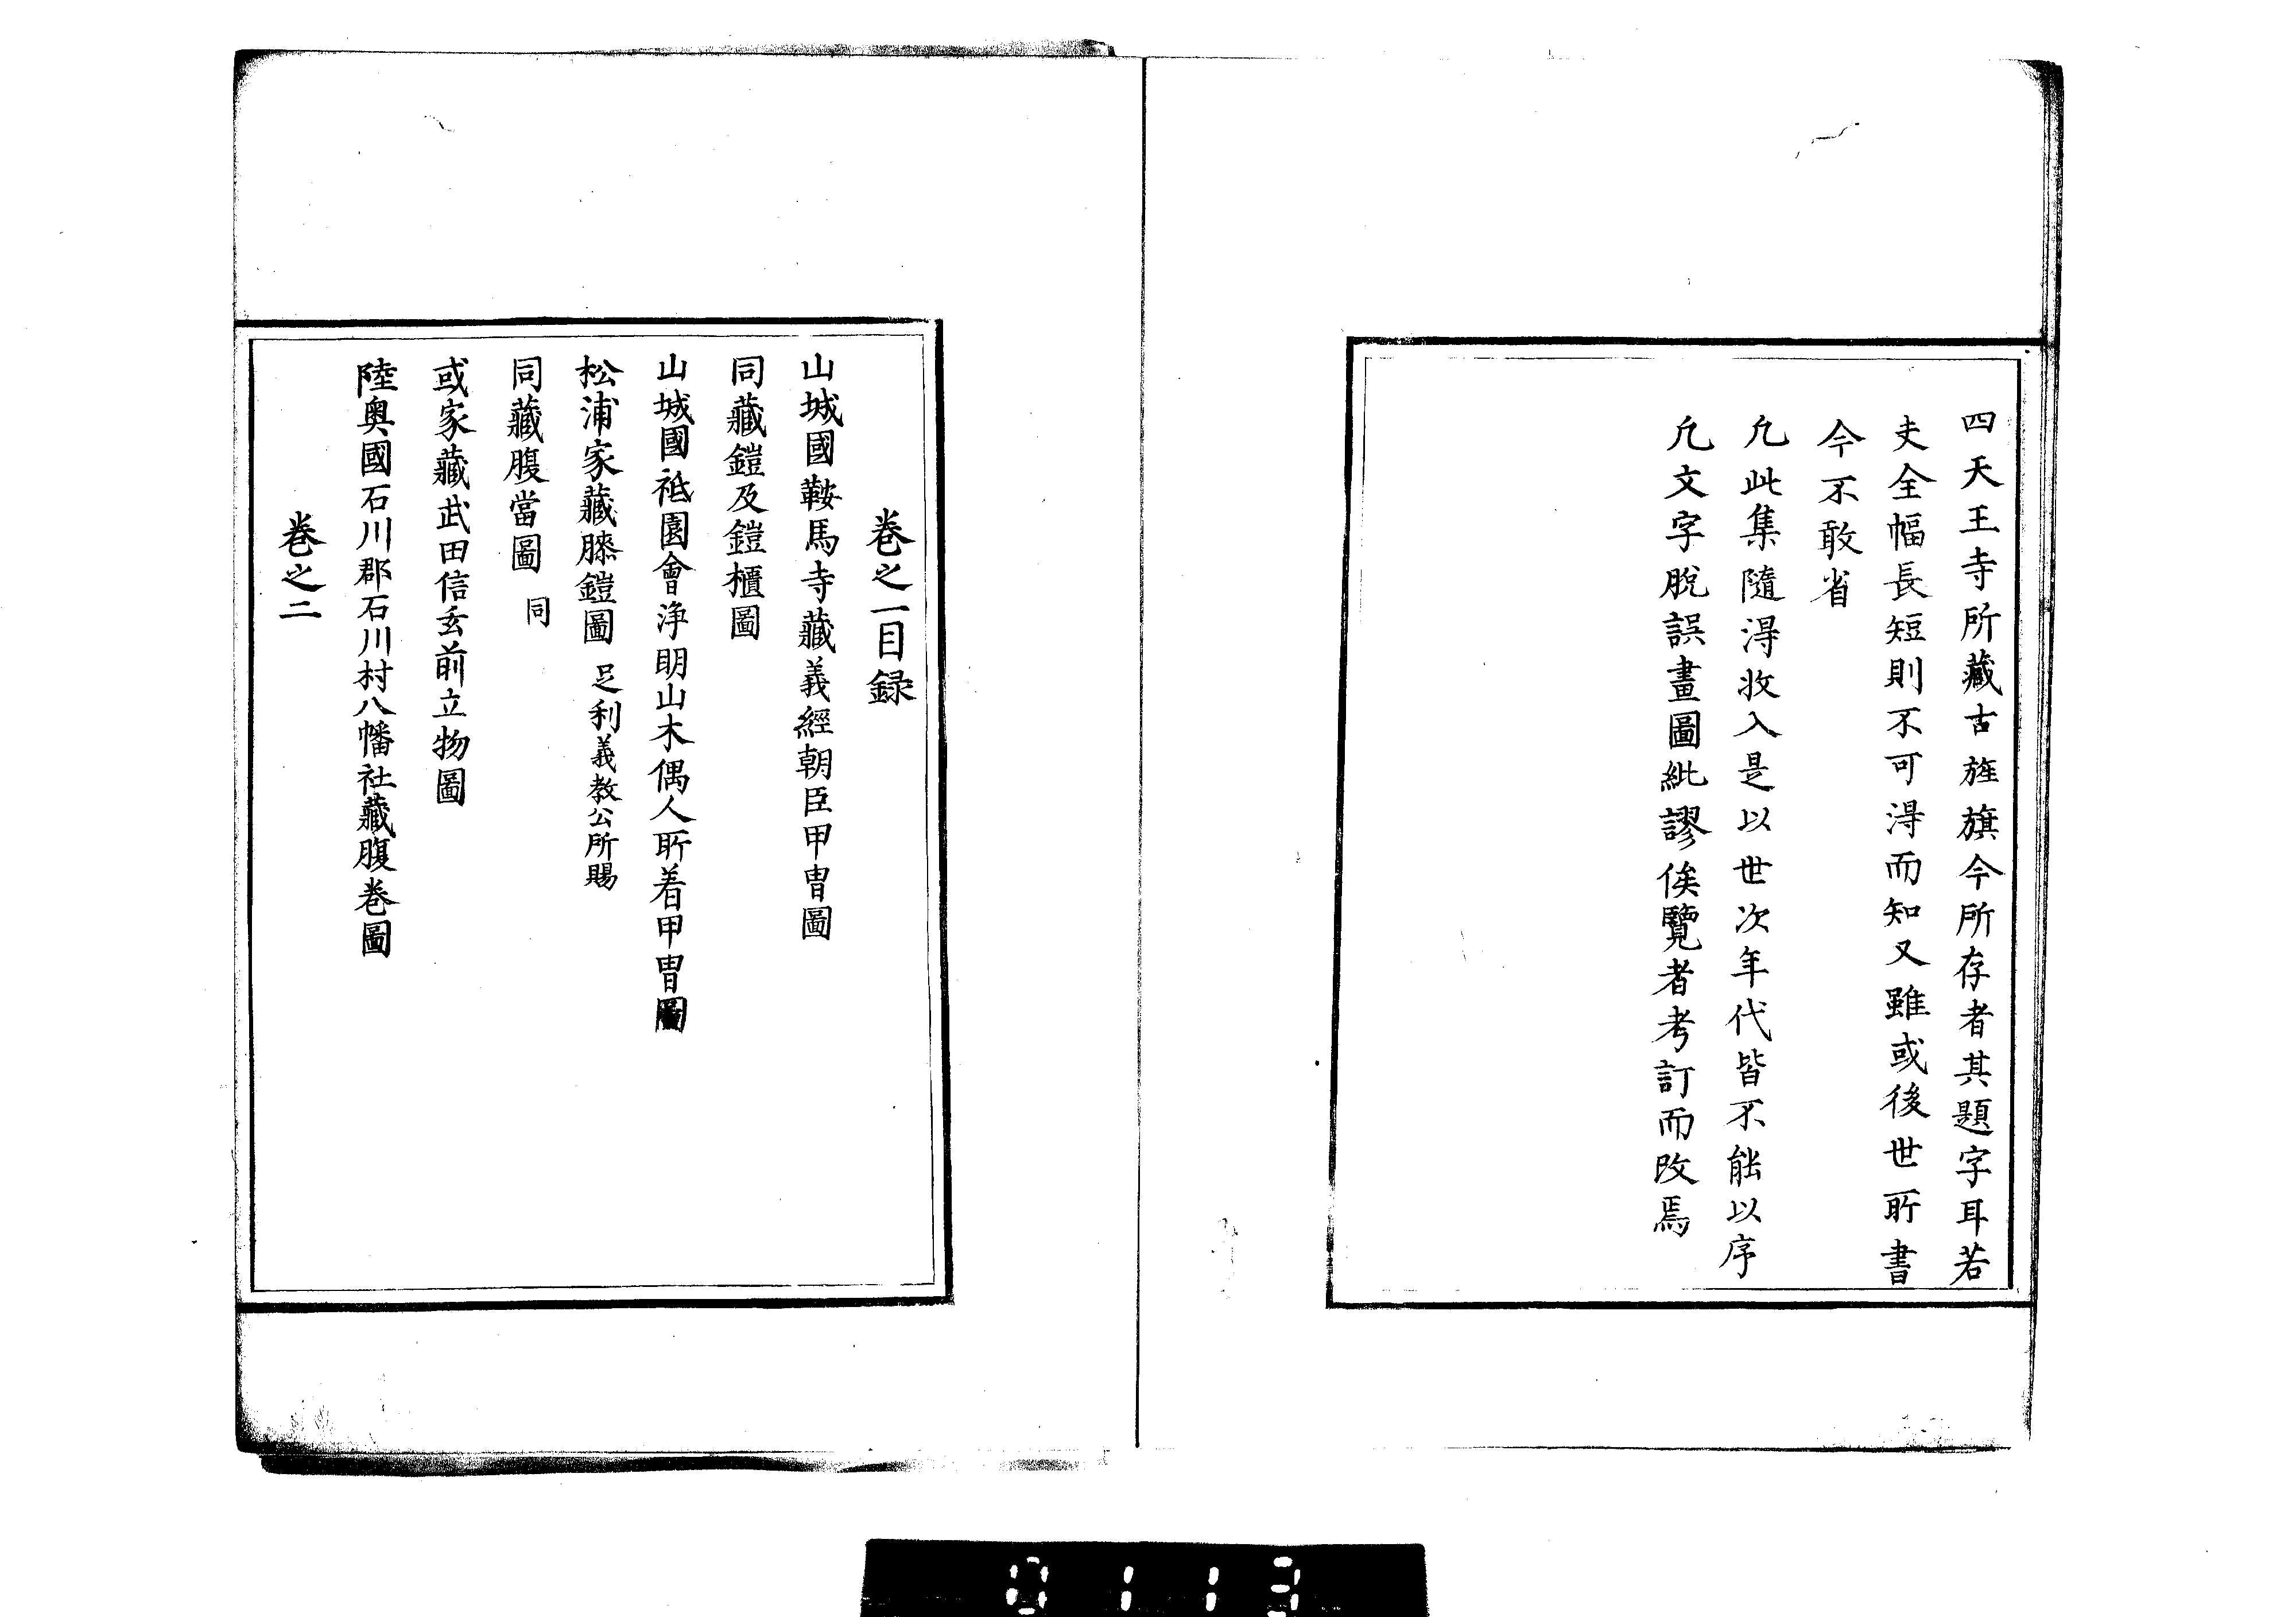 四天王寺所藏古旌旗今所存者其題字耳若
夫全幅長短則不可淂而知又雖或後世所書
今不敢省
凢此集隨淂收入是以世次年代皆不能以序
凢文字脫誤畫圖紕謬俟覽者考訂而改焉
巻之一目録
山城國鞍馬寺藏義經朝臣甲冑圖
同藏鎧及鎧櫃圖
山城國祗園會淨明山木偶人所着甲冑圖
松浦家藏縢鎧圖 足利義教公所賜
同藏腹當圖 同
或家藏武田信玄前立物圖
陸奥國石川郡石川村八幡社藏腹巻圖
巻之二
0113